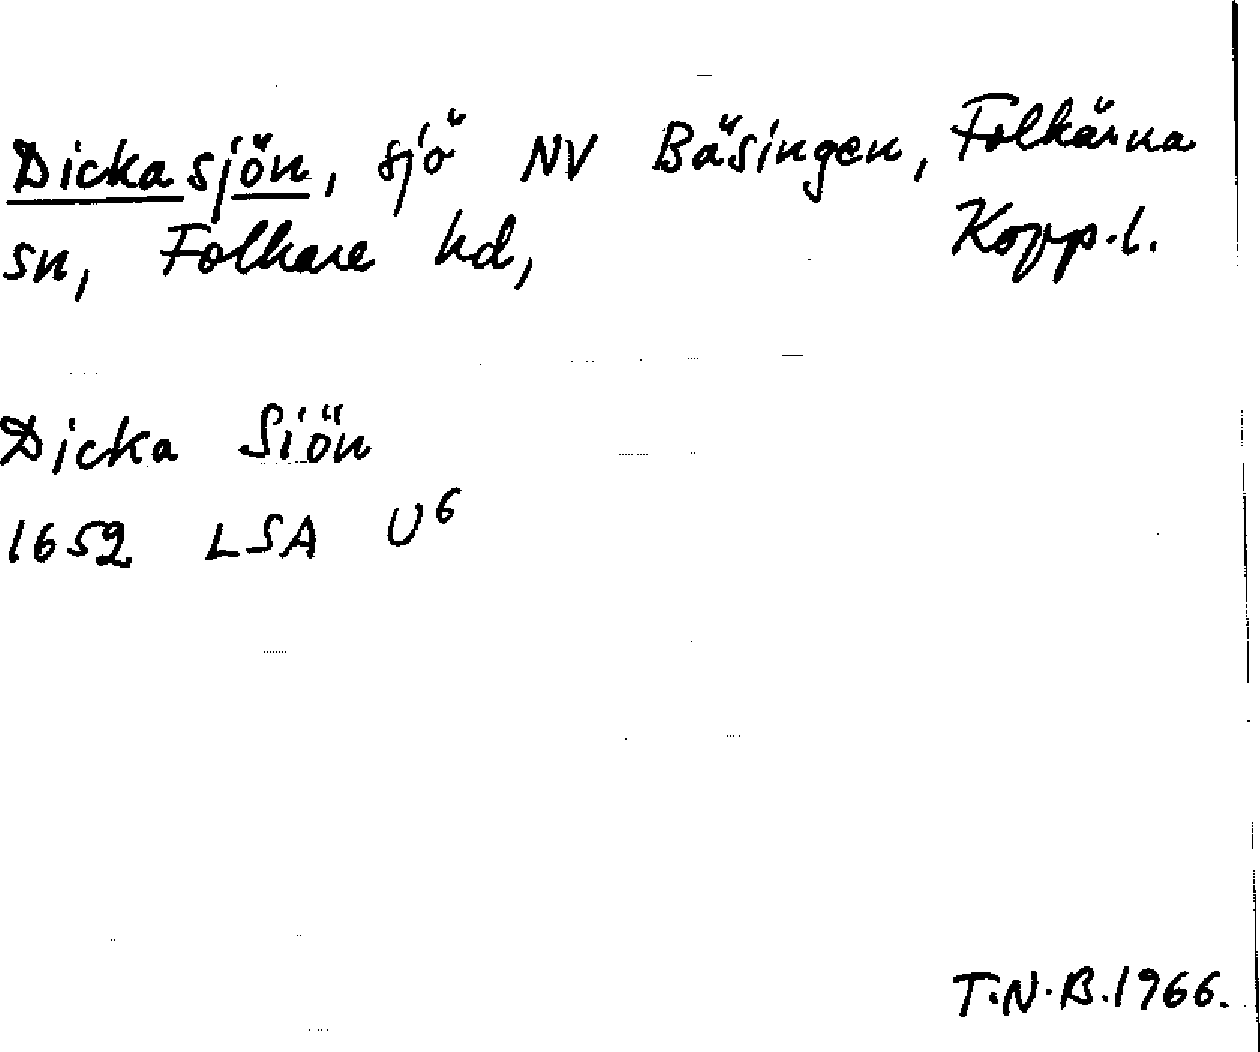 Dickasjön, sjö NV Bäsingen, Folkärna
sn, Folkare hd, Kopp.l.
Dicka Siön
1652 LSA U6
T.N.B.1966.